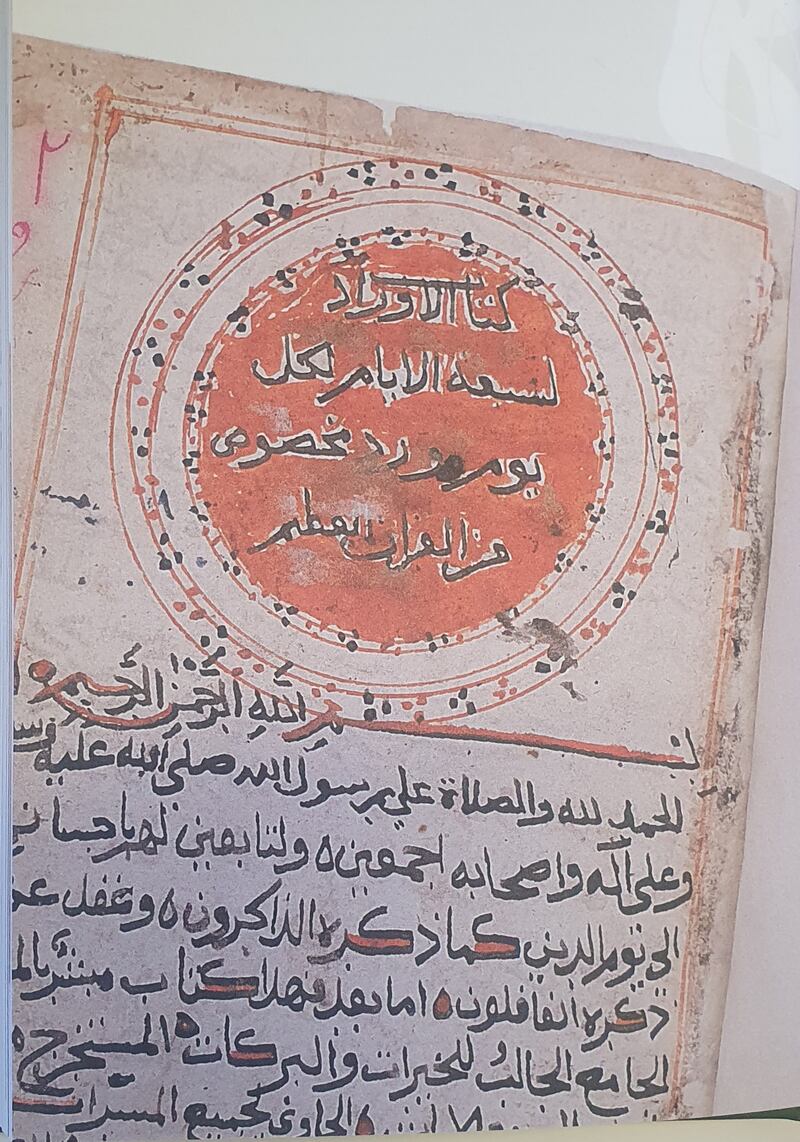 كتاب الاوراد
لسبعة الايام لكل
يوم ورد مخصوص
من القران العظيم
بسم الله الرحمن الرحيم
الحمد لله والصلاة على رسول الله صلى الله عليه وس
وعلى آله واصحابه اجمعين ولتابعين لهم باحسان
الى يوم الدين كما ذكره الذاكرون وغفل عن
ذكره الغافلون اما بعد فهذا كتاب
الجامع الجالب للخيرات والبركات المستخرج
الحاوي لجميع المسرات